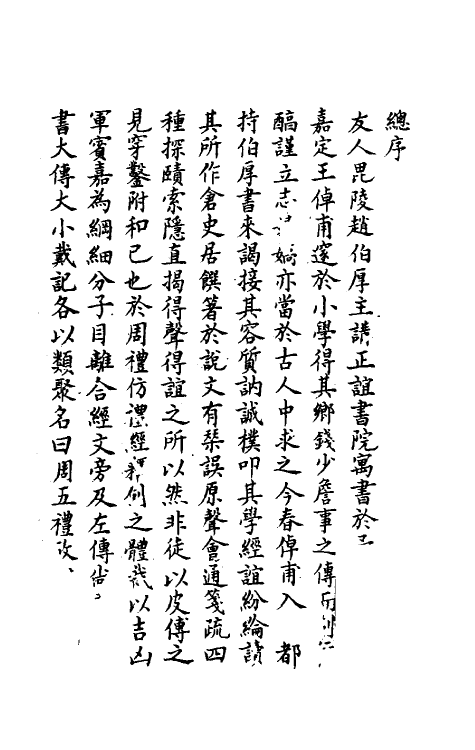 總序
友人毘陵趙伯厚主講正誼書院寓書於
嘉定王倬甫邃於小學得其鄉錢少詹事之傳而
醕謹立志亦當於古人中求之今春倬甫入 都
持伯厚書來謁接其容質訥誠樸叩其學經誼紛綸讀
其所作倉史居饌箸於說文有桀誤原聲會通箋疏四
種探賾索隱直揭得聲得誼之所以然非徒以皮傳之
見穿鑿附和已也於周禮仿禮經釋例之體裁以吉凶
軍賓嘉為綱細分子目離合經文旁及左傳
書大傳大小戴記各以類聚名曰周五禮攷、